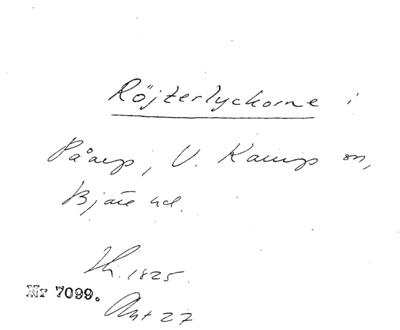 Röjterlyckorne i
Påarp, V. Karups sn,
Bjäre hd.
Sk. 1825.
Nr 7099.
Akt 27